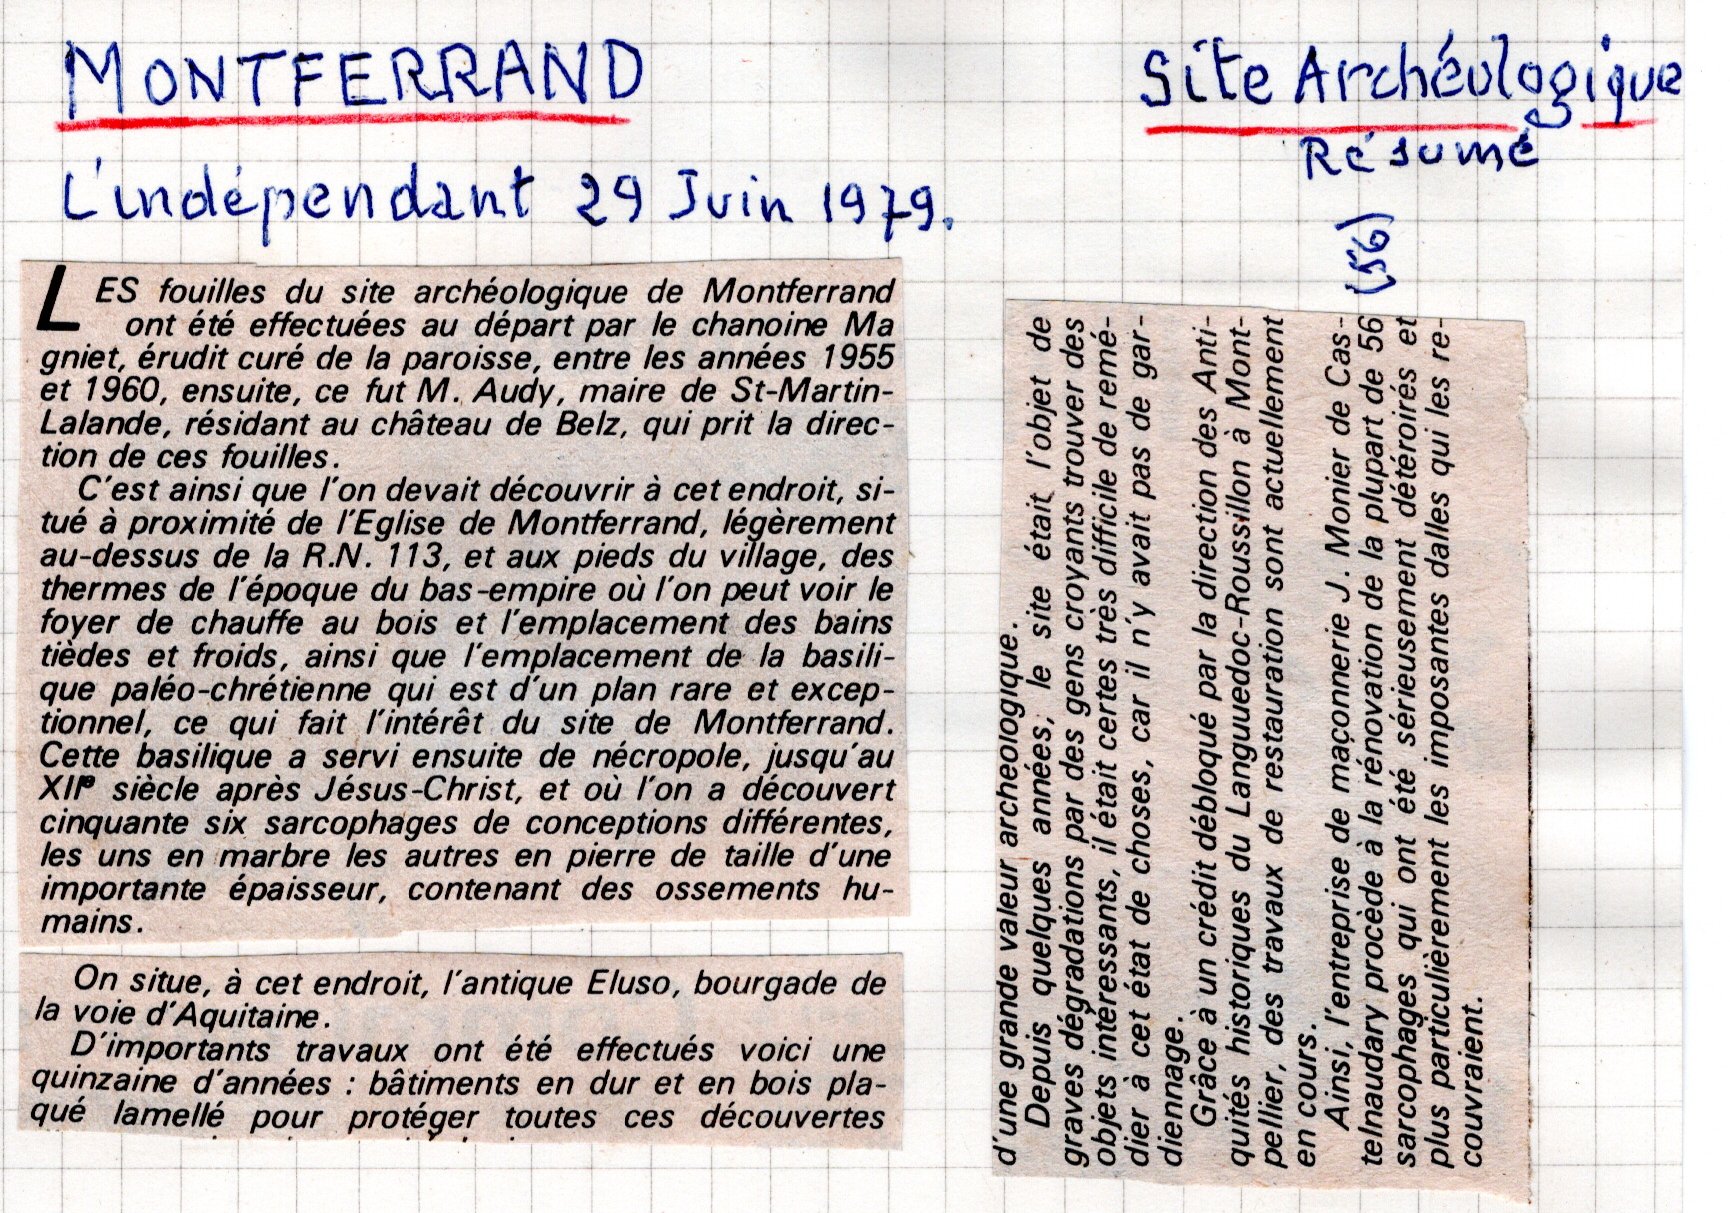 MONTFERRAND
Site Archéologique
Résumé
L'indépendant 29 Juin 1979.
(56)
LES fouilles du site archéologique de Montferrand
ont été effectuées au départ par le chanoine Ma
gniet, érudit curé de la paroisse, entre les années 1955
et 1960, ensuite, ce fut M. Audy, maire de St-Martin-
Lalande, résidant au château de Belz, qui prit la direc-
tion de ces fouilles.
C'est ainsi que l'on devait découvrir à cet endroit, si-
tué à proximité de l'Eglise de Montferrand, légèrement
au-dessus de la R.N. 113, et aux pieds du village, des
thermes de l'époque du bas-empire où l'on peut voir le
foyer de chauffe au bois et l'emplacement des bains
tièdes et froids, ainsi que l'emplacement de la basili-
que paléo-chrétienne qui est d'un plan rare et excep-
tionnel, ce qui fait l'intérêt du site de Montferrand.
Cette basilique a servi ensuite de nécropole, jusqu'au
XIIe siècle après Jésus-Christ, et où l'on a découvert
cinquante six sarcophages de conceptions différentes,
les uns en marbre les autres en pierre de taille d'une
importante épaisseur, contenant des ossements hu-
mains.
On situe, à cet endroit, l'antique Eluso, bourgade de
la voie d'Aquitaine.
D'importants travaux ont été effectués voici une
quinzaine d'années : bâtiments en dur et en bois pla-
qué lamellé pour protéger toutes ces découvertes
d'une grande valeur archéologique.
Depuis quelques années, le site était l'objet de
graves dégradations par des gens croyants trouver des
objets intéressants, il était certes très difficile de remé-
dier à cet état de choses, car il n'y avait pas de gar-
diennage.
Grâce à un crédit débloqué par la direction des Anti-
quités historiques du Languedoc-Roussillon à Mont-
pellier, des travaux de restauration sont actuellement
en cours.
Ainsi, l'entreprise de maçonnerie J. Monier de Cas-
telnaudary procède à la rénovation de la plupart de 56
sarcophages qui ont été sérieusement détéroirés et
plus particulièrement les imposantes dalles qui les re-
couvraient.